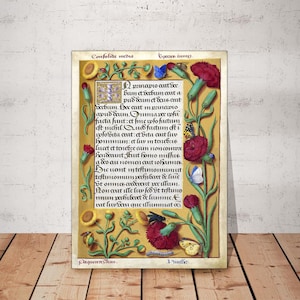 Consolida media
In principio erat ver
bum et verbum erat a
pud deum et deus erat ver
bum Hoc erat in principio
apud deum. Omnia per ipsum
facta sunt: et sine ipso factum
est nichil. Quod factum est
in ipso vita erat et vita erat lux
hominum: et lux in tenebris
lucet et tenebre eam non com
prehenderunt. Fuit homo missus
a deo cui nomen erat
Hic venit in testimonium ut
testimonium perhiberet de lumi
ne ut omnes crederent per illum.
Non erat ille lux: sed ut testi
monium perhiberet de lumine. E
rat lux vera que